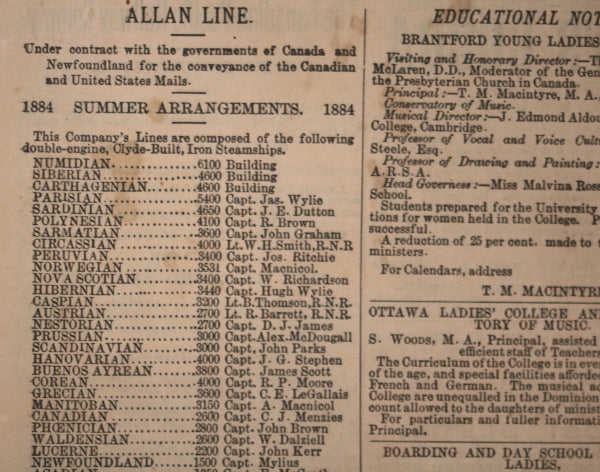 ALLAN LINE.
Under contract with the governments of Canada and
Newfoundland for the conveyance of the Canadian
and United States Mails.
1884 SUMMER ARRANGEMENTS. 1884
This Company's Lines are composed of the following
double-engine, Clyde-Built, Iron Steamships.
NUMIDIAN..............6100 Building
SIBERIAN................4600 Building
CARTHAGENIAN.....4600 Building
PARISIAN................5400 Capt. Jas. Wylie
SARDINIAN.............4650 Capt. J. E. Dutton
POLYNESIAN...........4100 Capt. R. Brown
SARMATIAN............3600 Capt. John Graham
CIRCASSIAN............4000 Lt.W.H.Smith,R.N.R
PERUVIAN..............3400 Capt. Jos. Ritchie
NORWEGIAN...........3531 Capt. Macnicol.
NOVA SCOTIAN.......3400 Capt. W. Richardson
HIBERNIAN.............3440 Capt. Hugh Wylie
CASPIAN.................3200 Lt.B.Thomson,R.N.R.
AUSTRIAN...............2700 Lt. R. Barrett, R.N.R.
NESTORIAN.............2700 Capt. D. J. James
PRUSSIAN...............3000 Capt.Alex.McDougall
SCANDINAVIAN.......3000 Capt. John Parks
HANOVARIAN.........4000 Capt. J. G. Stephen
BUENOS AYREAN....3800 Capt. James Scott
COREAN.................4000 Capt. R. P. Moore
GRECIAN................3600 Capt. C. E. LeGallais
MANITOBAN...........3150 Capt. A. Macnicol
CANADIAN..............2600 Capt. C. J. Menzies
PHŒNICIAN............2800 Capt. John Brown
WALDENSIAN.........2600 Capt. W. Dalziell
LUCERNE...............2200 Capt. John Kerr
NEWFOUNDLAND....1500 Capt. Mylius
EDUCATIONAL NOT
BRANTFORD YOUNG LADIES
Visiting and Honorary Director:—Th
McLaren, D.D., Moderator of the Gen
the Presbyterian Church in Canada.
Principal:—T. M. Macintyre, M. A.,
Conservatory of Music.
Musical Director:—J. Edmond Aldou
College, Cambridge.
Professor of Vocal and Voice Cultu
Steele, Esq.
Professor of Drawing and Painting:
A.R.S.A.
Head Governess:—Miss Malvina Ross
School.
Students prepared for the University
tions for women held in the College. P
successful.
A reduction of 25 per cent. made to t
ministers.
For Calendars, address
T. M. MACINTYRE
OTTAWA LADIES' COLLEGE AN
TORY OF MUSIC.
S. Woods, M. A., Principal, assisted
efficient staff of Teachers
The Curriculum of the College is in ever
of the age, and special facilities afforded
French and German. The musical ad
College are unequalled in the Dominion
count allowed to the daughters of minist
For particulars and fuller informati
Principal.
BOARDING AND DAY SCHOOL
LADIES,